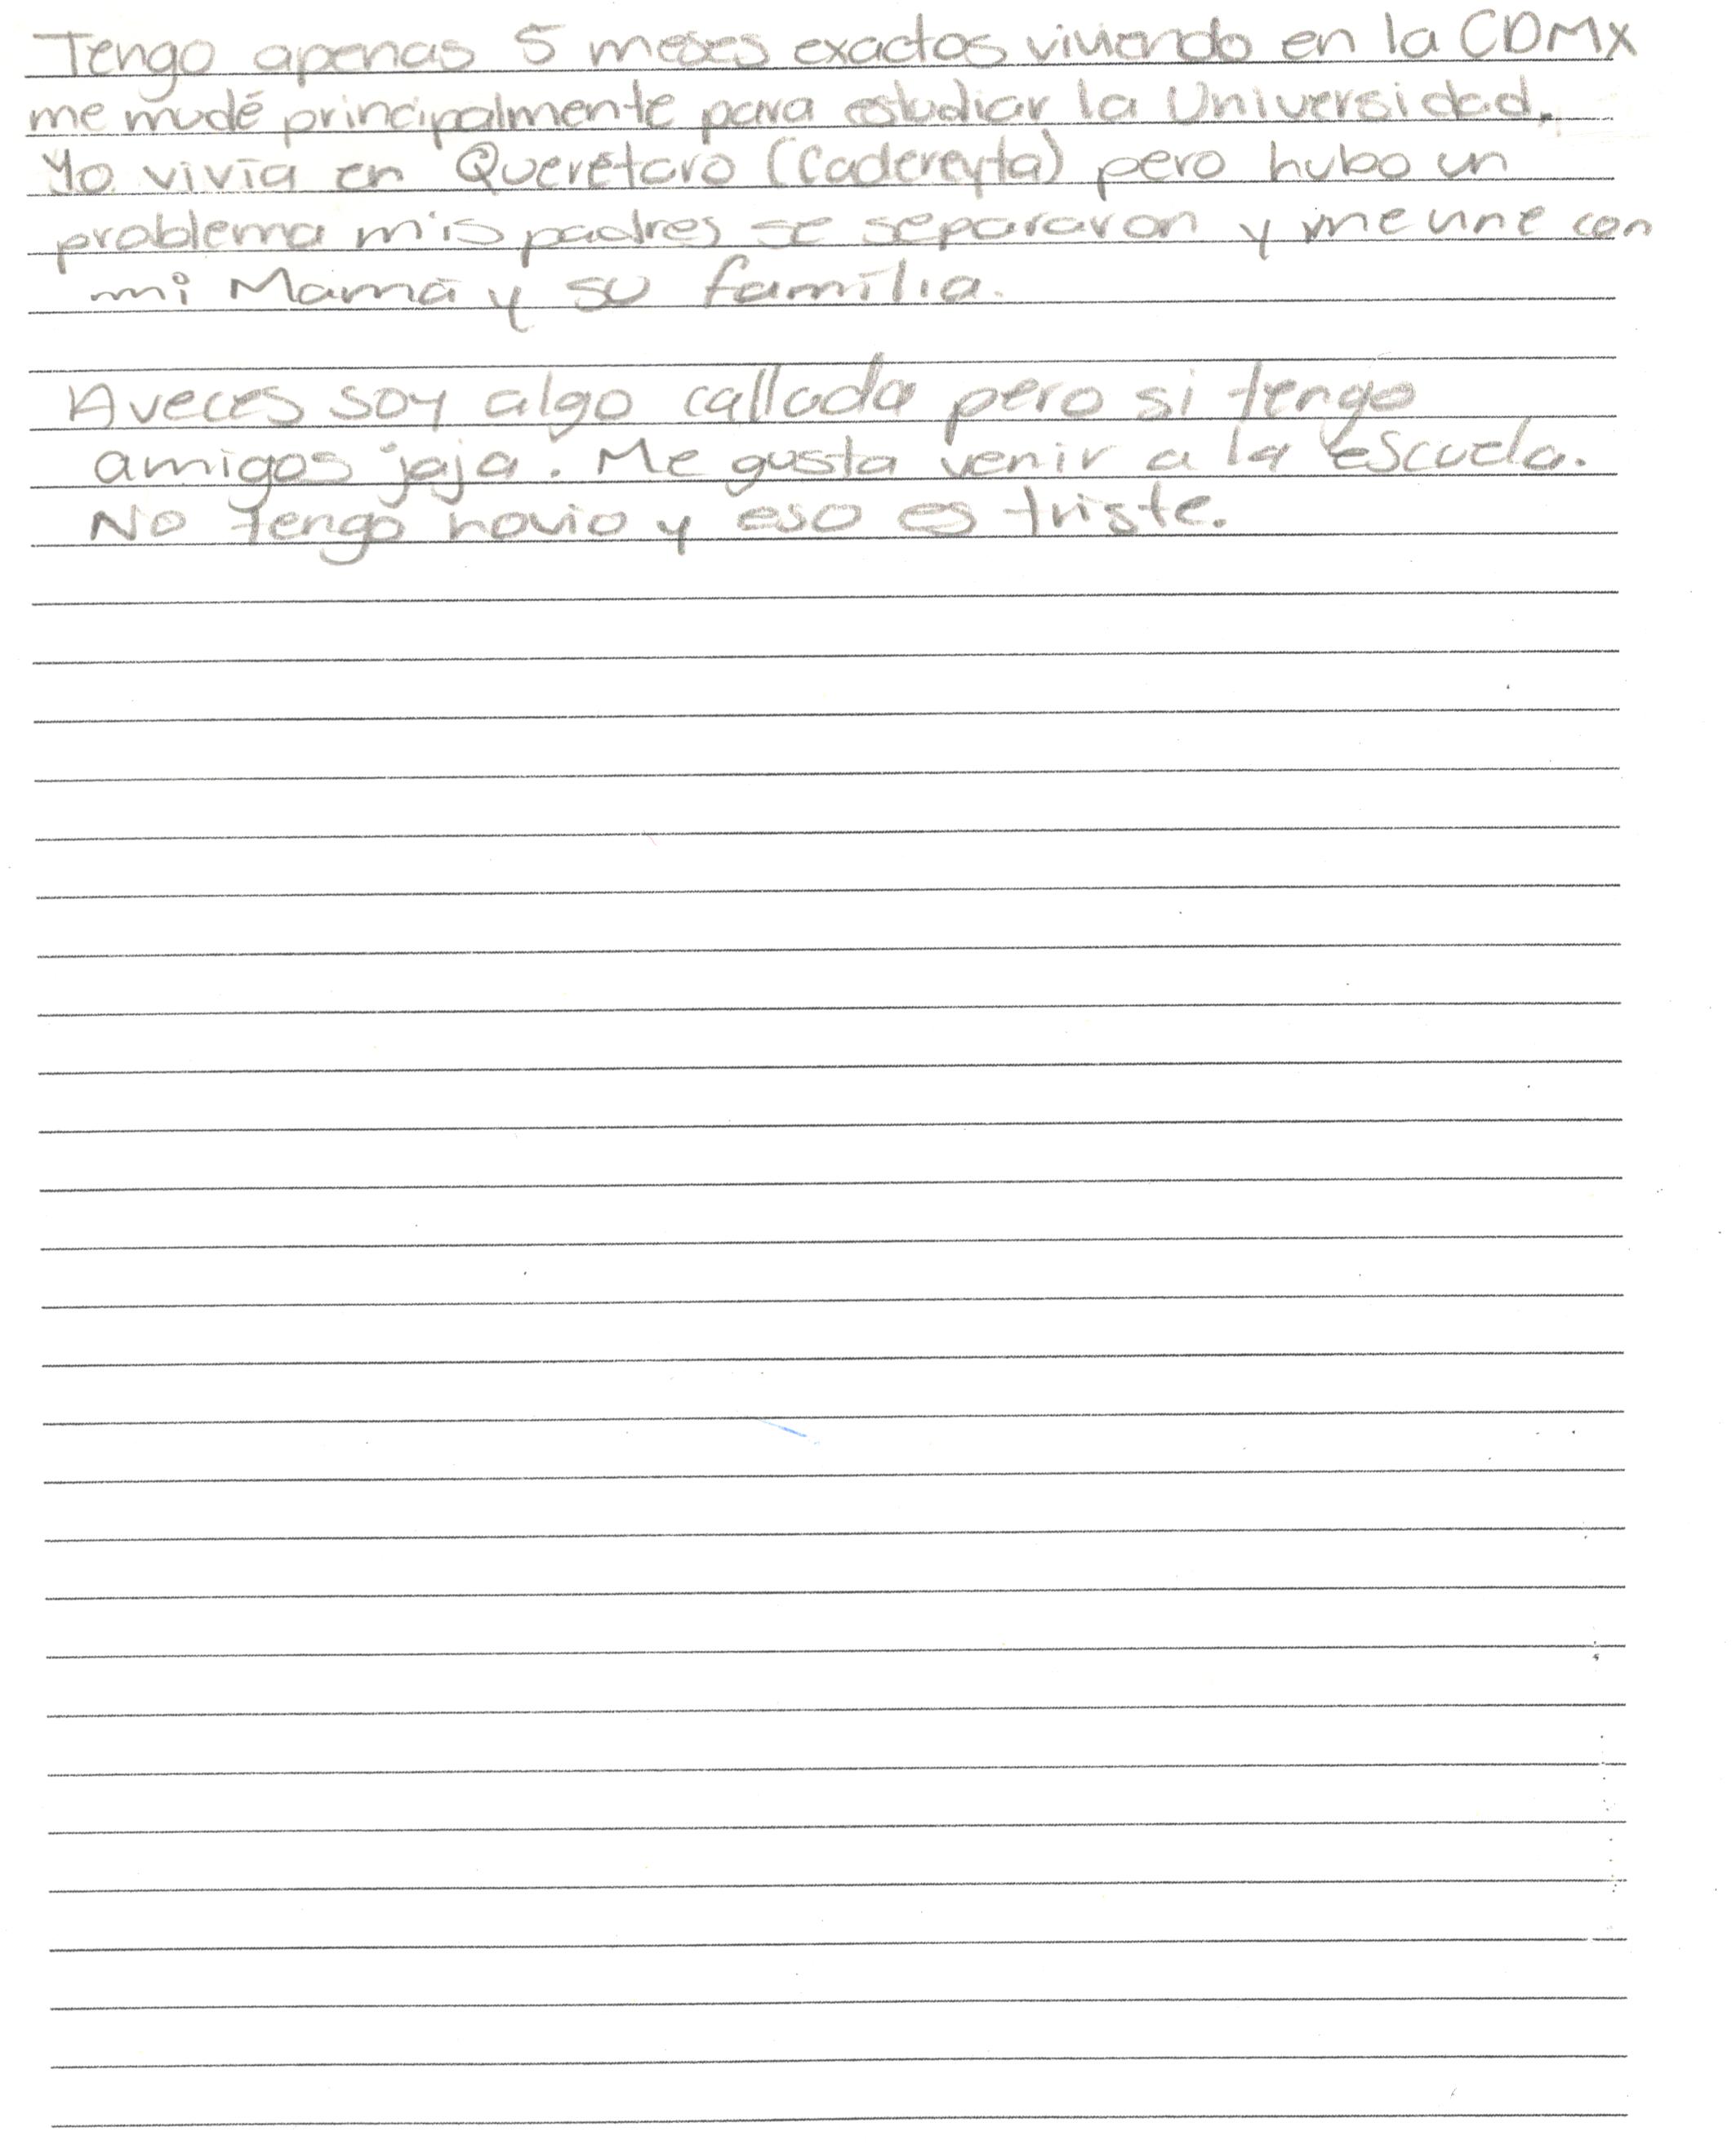 Tengo apenas 5 meses exactos viviendo en la CDMX
me mudé principalmente para estudiar la Universidad.
Yo vivía en Querétaro (Cadereyta) pero hubo un
problema mis padres se separaron y me une con
mi Mamá y su família.
Aveces soy algo callada pero si tengo
amigos jaja. Me gusta venir a la escuela.
No tengo novio y eso es triste.